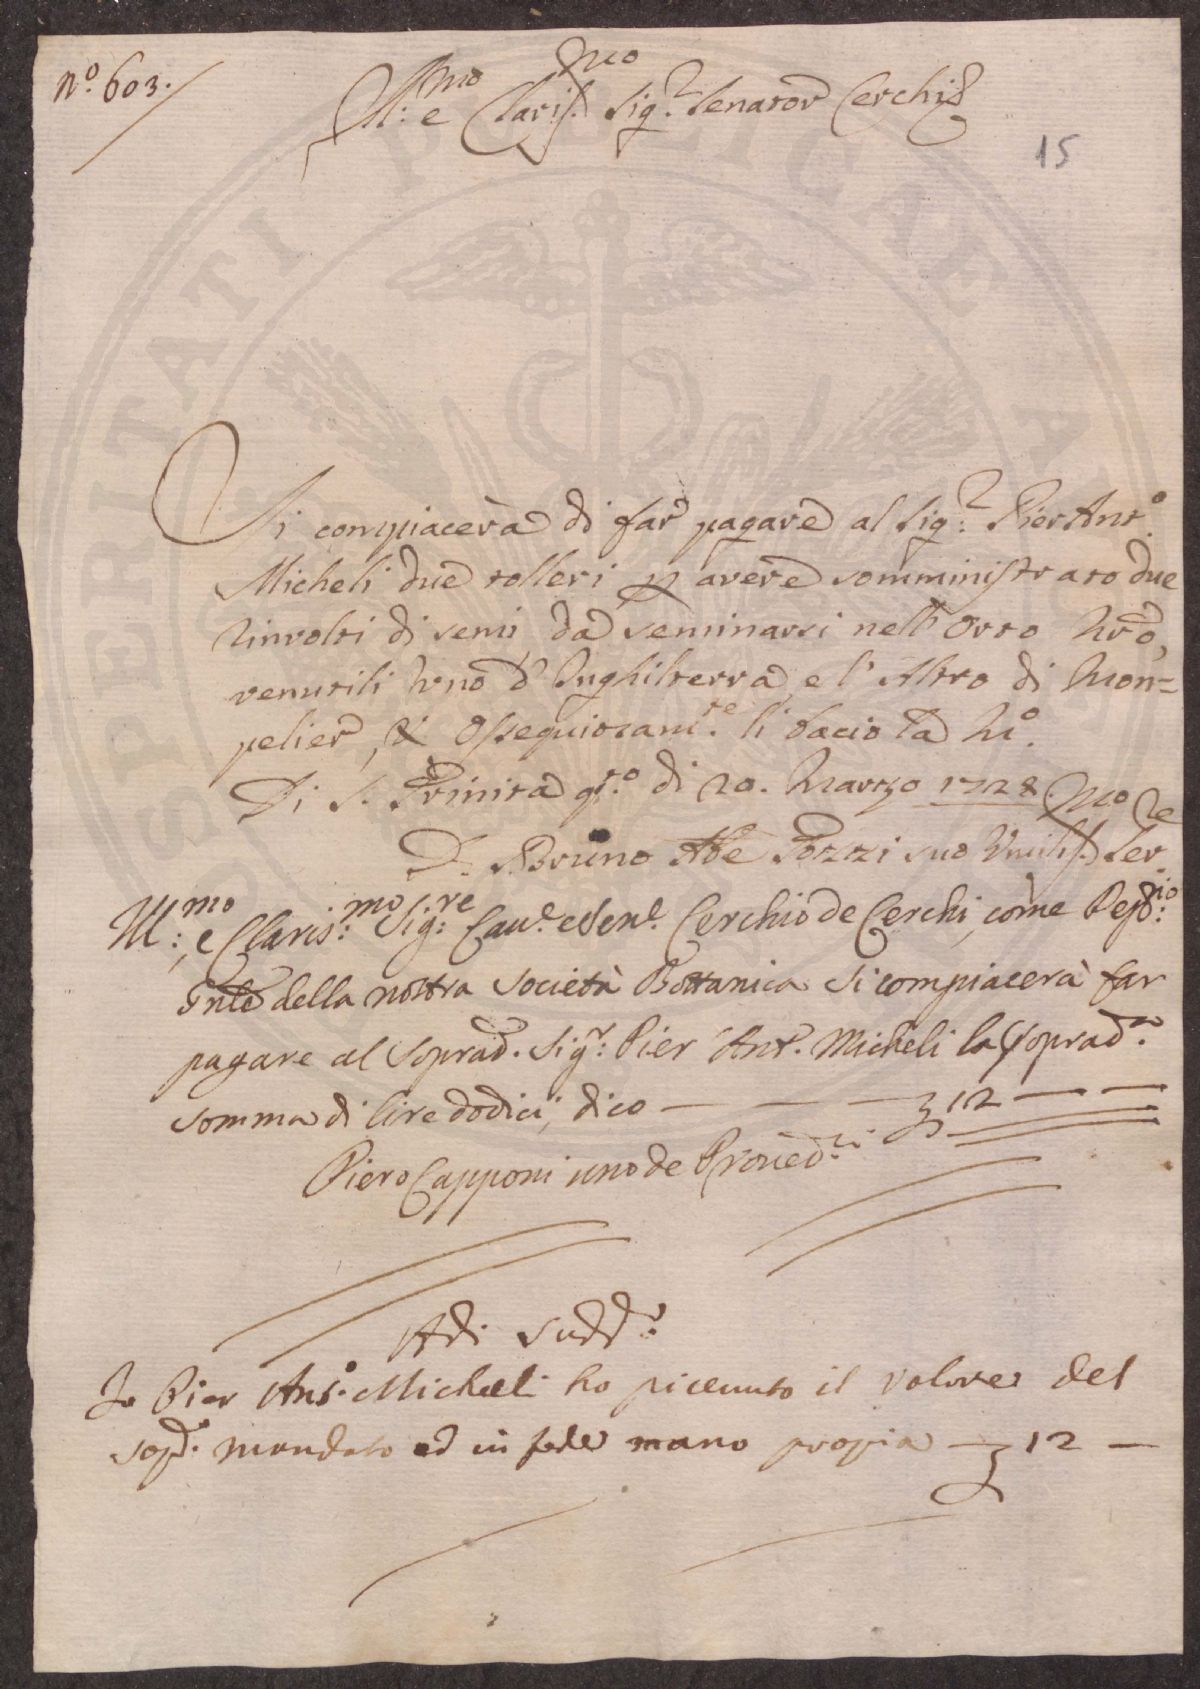 N.º 603.
Ill:mo e Claris.mo Sig.r Senator Cerchi
15
Si compiacerà di far pagare al Sig.r Pier Ant.º
Micheli due tolleri p avere somministrato due
Involti di semi da seminarsi nell'Orto Nr̃o,
venutili Uno d'Inghilterra, e l'Altro di Mon=
pelier, & Ossequiosam.te li bacio la M.º
Di S. Trinita q.to di 20. Marzo 1728
D. Bruno Ab̃e Tozzi suo Umilis.mo Ser.re
Ill:mo, e Claris:mo Sig:re Cav.e e Sen.e Cerchio de Cerchi, come
della nostra Società Bottanica si compiacerà far
pagare al soprad.º Sig.r Pier Ant.º Micheli la soprad.a
somma di lire dodici, dico — — — 12 — —
Piero Capponi uno de Proved.ri
Adi sudd.º
Io Pier Ant.º Micheli ho ricevuto il valore del
sop.º mandato ed in fede mano propia — 12 —
SPERITATI PUBLICAE A